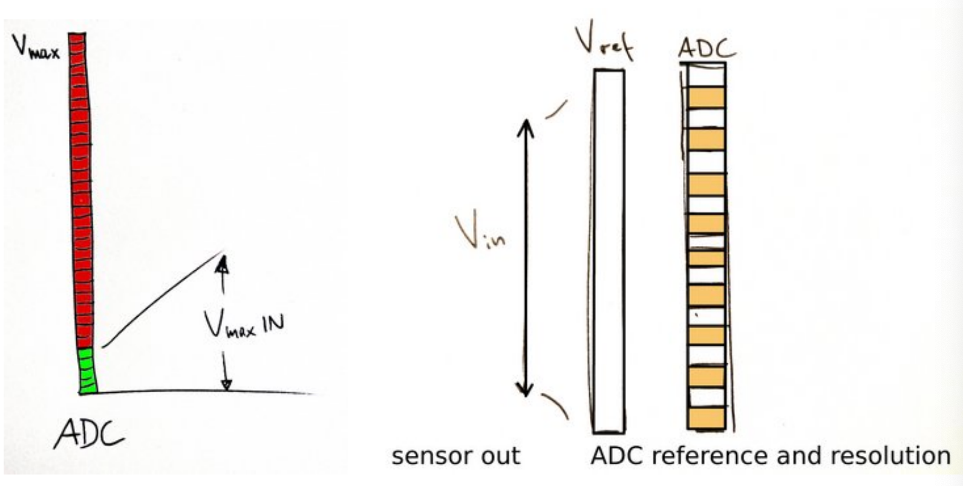 Vmax
Vmax IN
ADC
Vref
ADC
Vin
sensor out
ADC reference and resolution